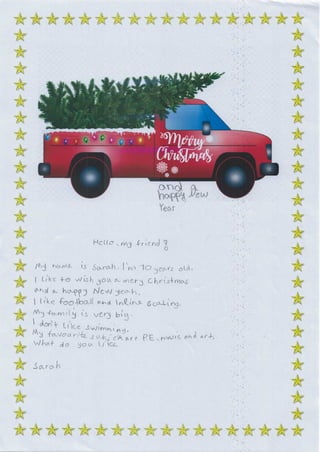 Merry
Christmas
and a
happy New
Year
Hello, my friend?
My name is Sarah. I'm 10 years old.
I like to wish you a mery Christmas
and a happy New yeah.
I like football and Inline scating.
My family is very big.
I don't like swimming.
My favourite are P.E, music and art.
What do you like
Sarah